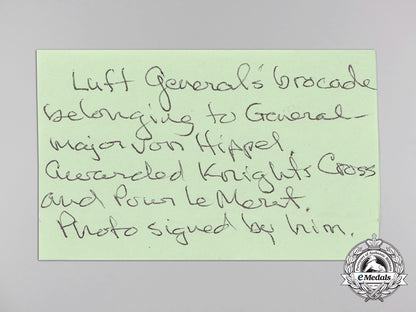 Luft General's brocade
belonging to General-
major von Hippel.
Awarded Knights Cross
and Pour le Merit.
Photo signed by him.
eMedals